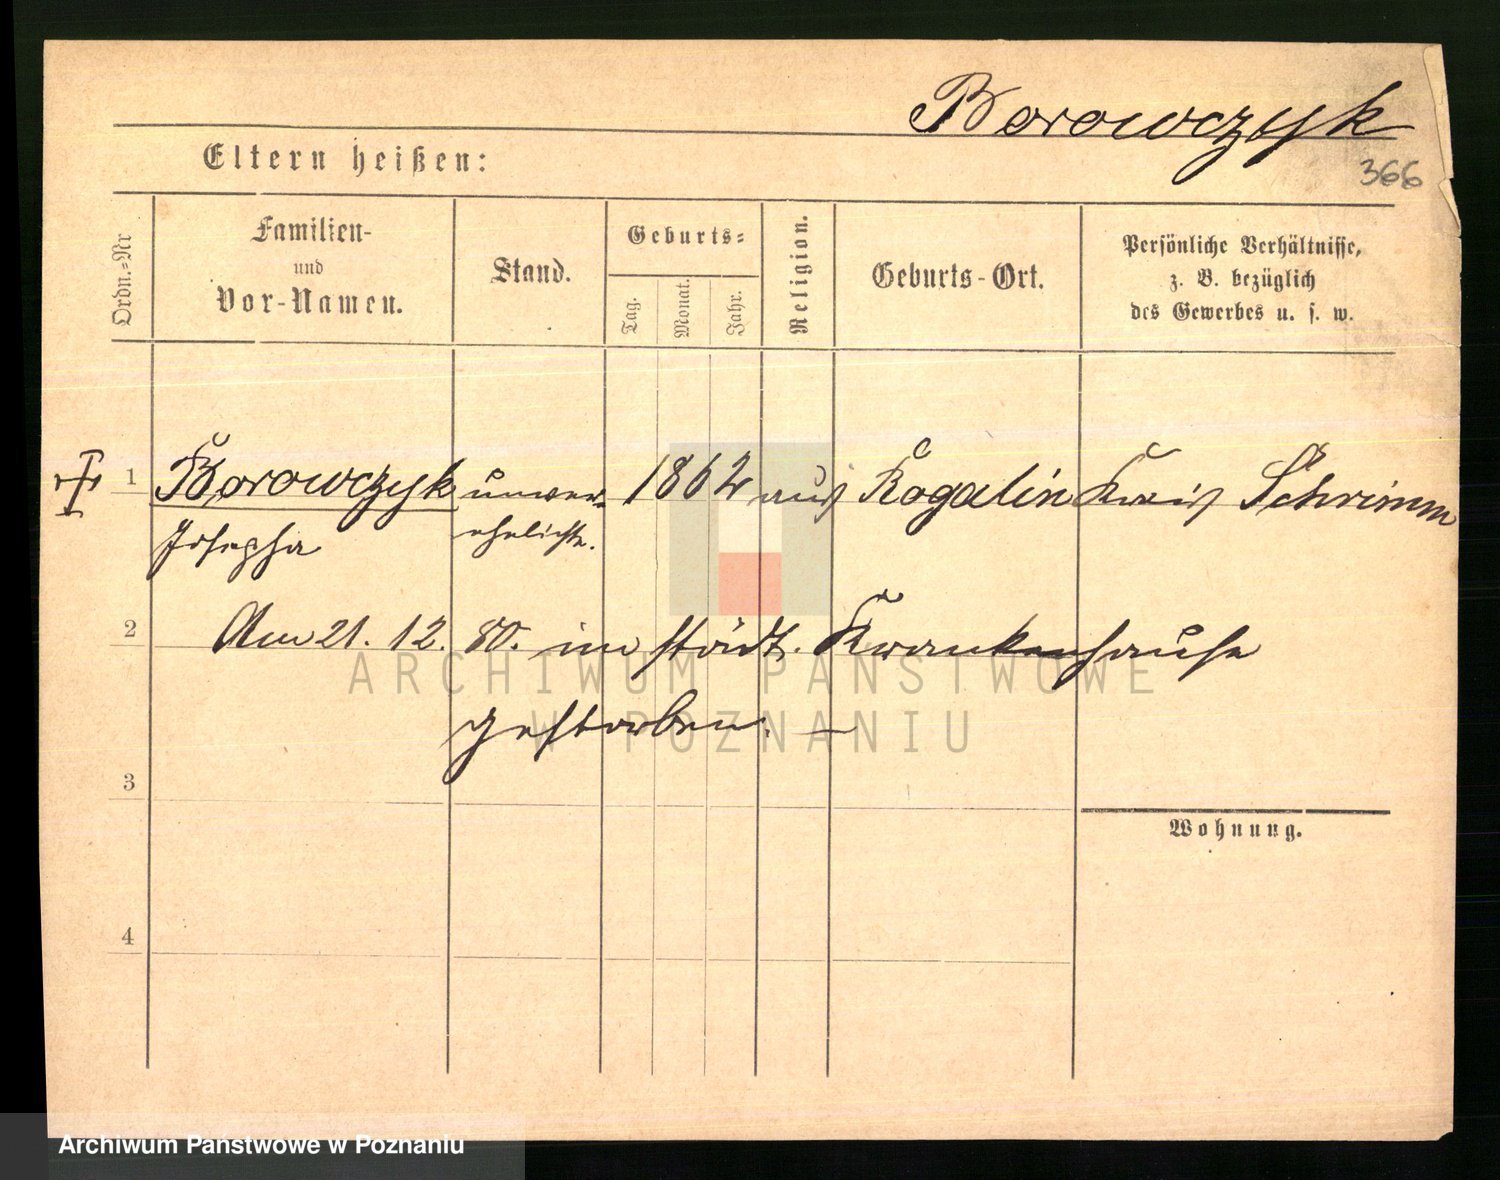 Borowczyk
Eltern heißen:
366
Ordn.=Nr
Familien-
und
Vor-Namen.
Stand.
Geburts=
Tag.
Monat.
Jahr.
Religion.
Geburts-Ort.
Persönliche Verhältnisse,
z. B. bezüglich
des Gewerbes u. s. w.
1 Borowczyk unver- 1862 aus Rogalin Kreis Schrimm
Josepha ehelichte.
2 Am 21. 12. 80. im städt. Krankenhause
gestorben. —
ARCHIWUM PAŃSTWOWE
W POZNANIU
3
Wohnung.
4
Archiwum Państwowe w Poznaniu